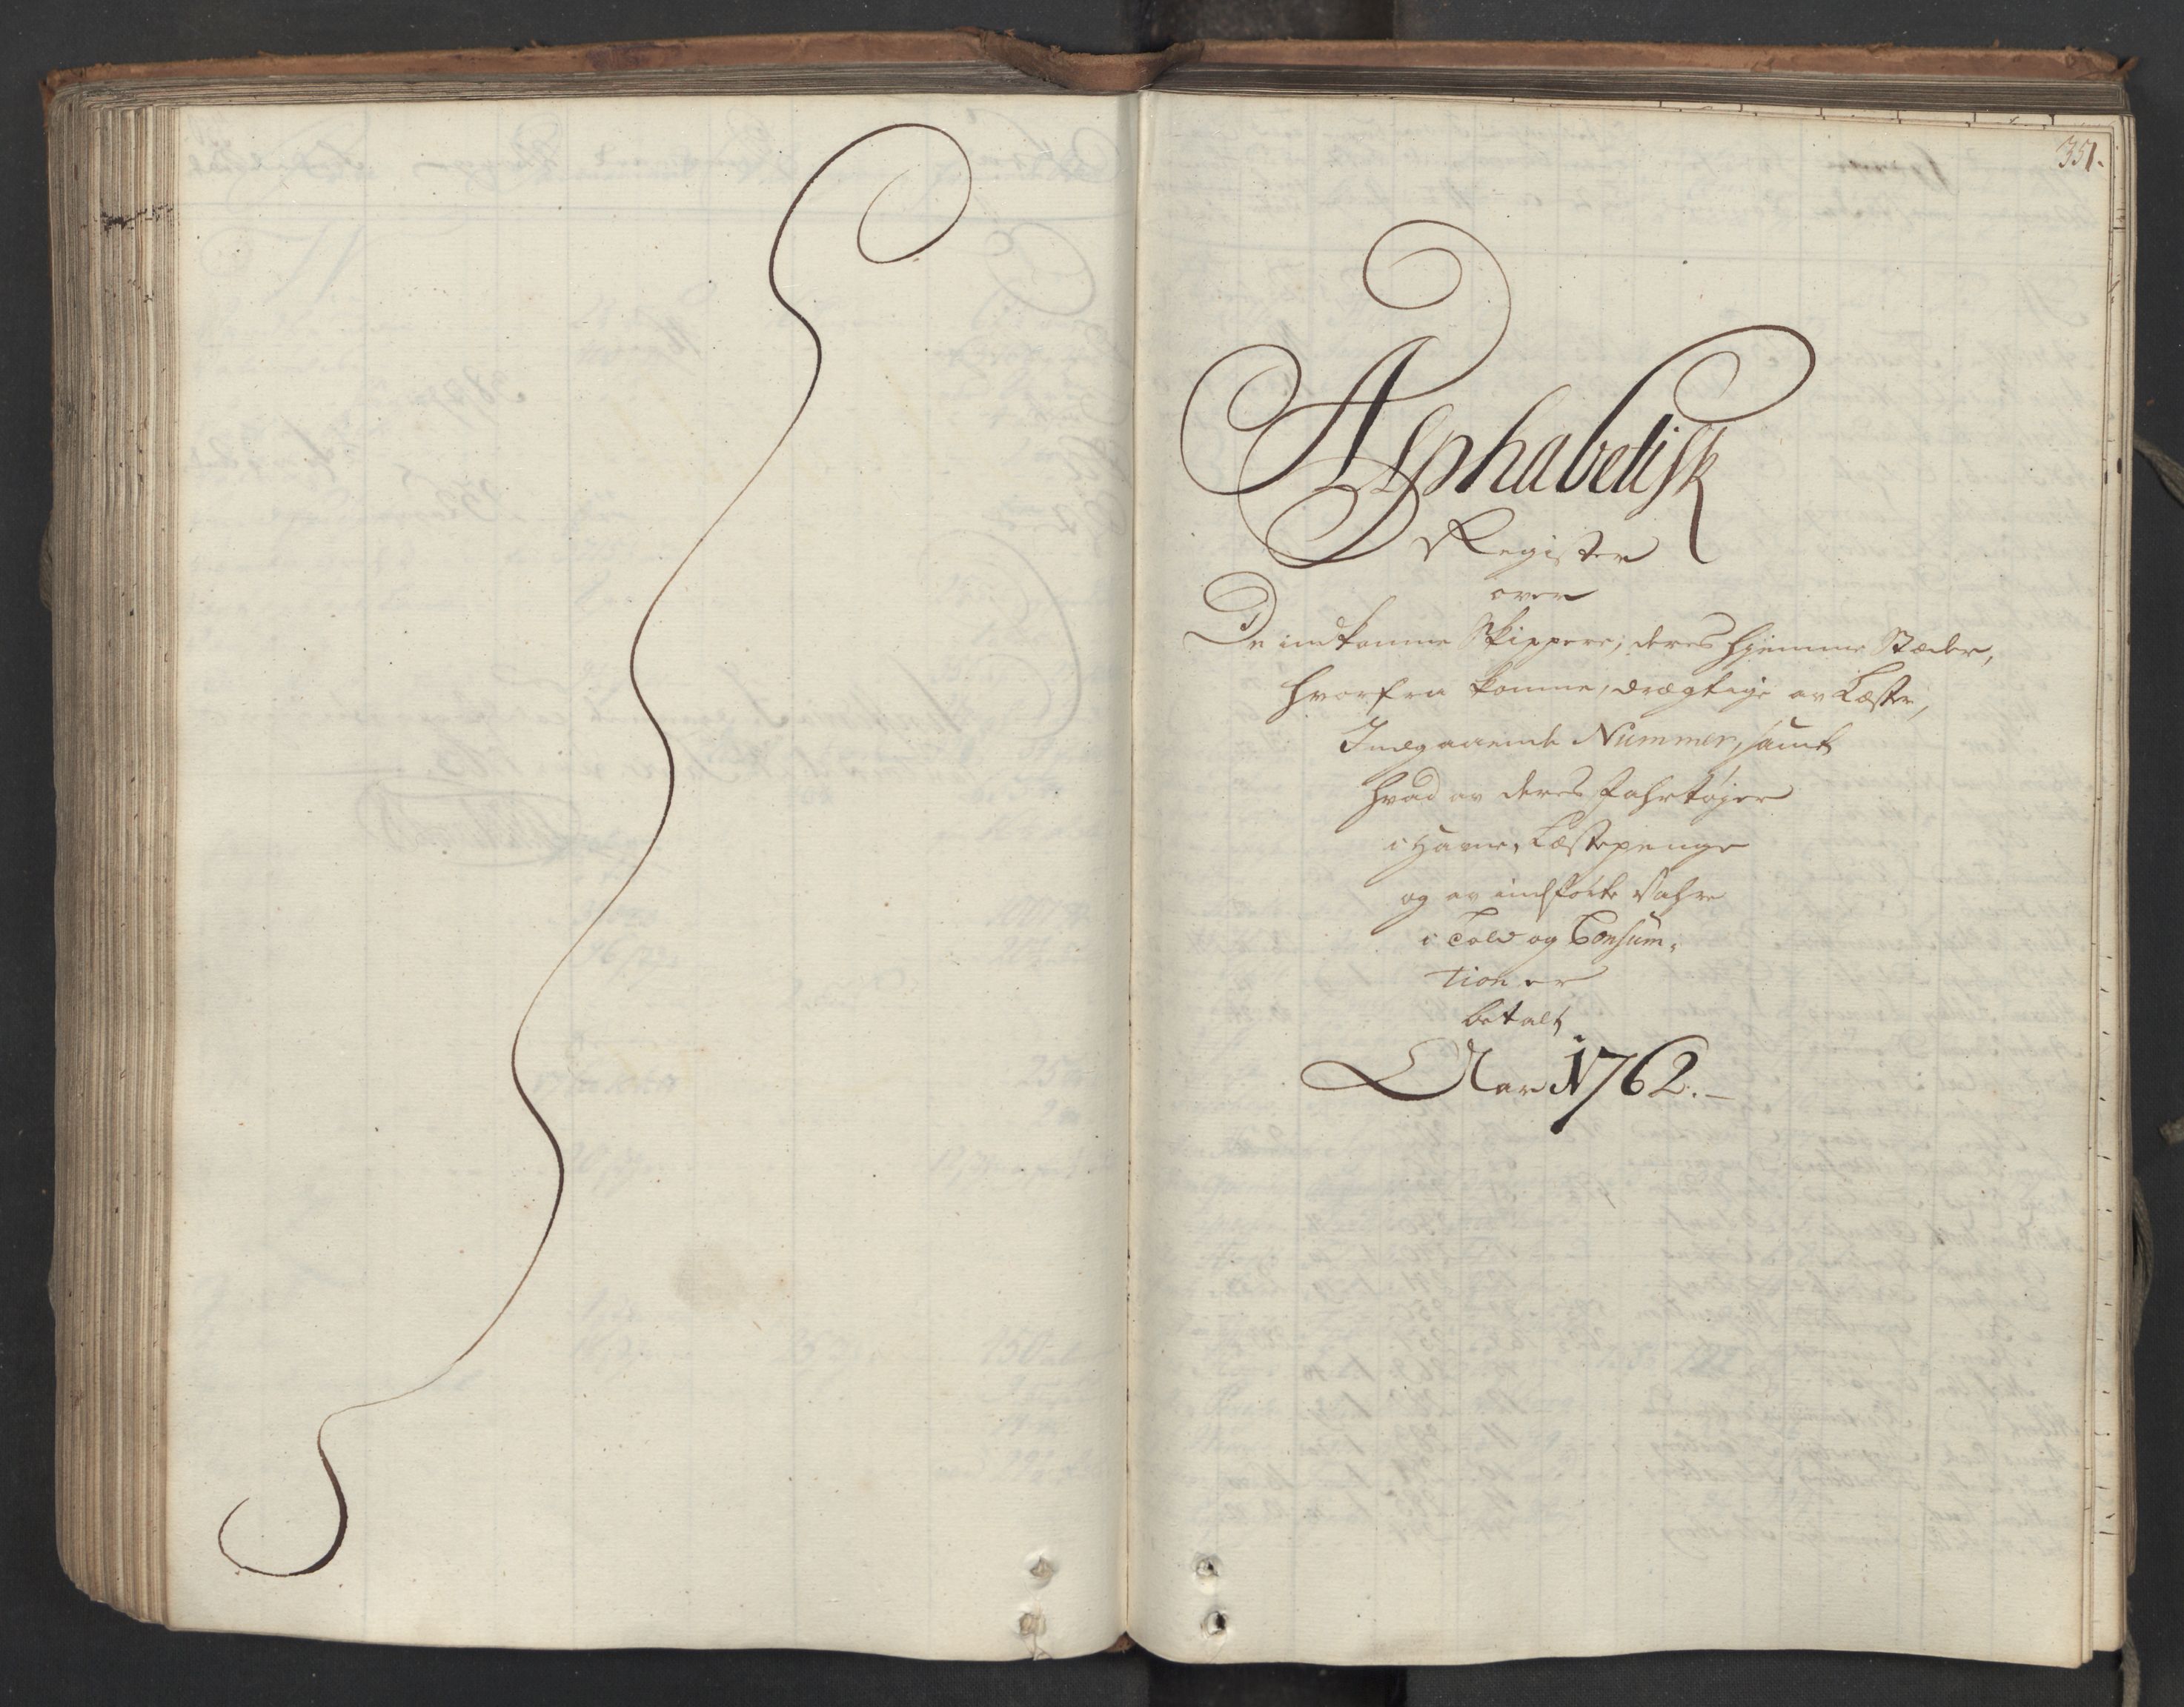 351.
Alphabetisk
Register
over
De indkomne Skippere, deres Hjemme Stæder,
hvorfra komne, drægtige av Læster,
Indgaaende Nummer, samt
hvad av deres Fahrtøjer
i Havne, Læstepenge
og av indførte Vahre
i Told og Consum-
tion er
betalt
Aar 1762.